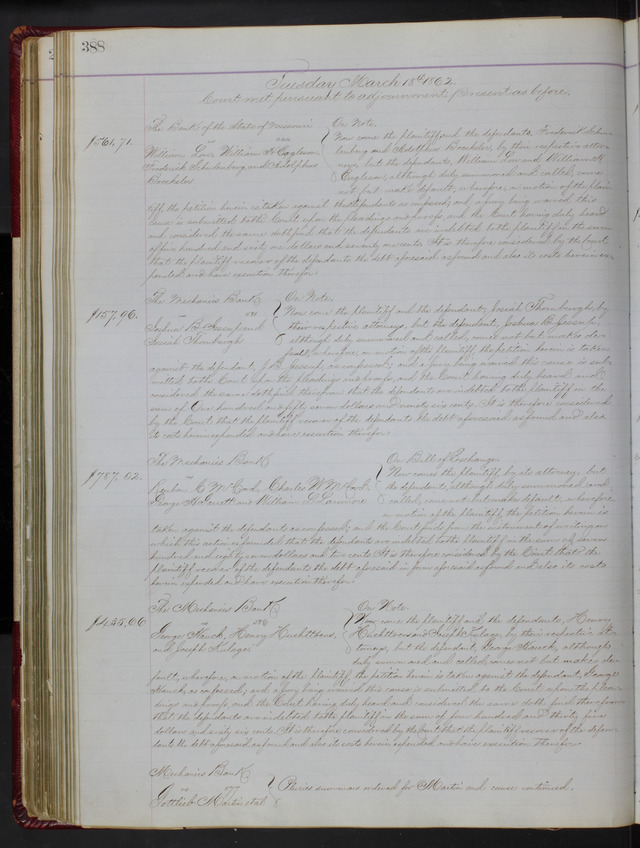 388
Tuesday March 18th 1862.
Court met pursuant to adjournment. Present as before.
The Bank of the State of Missouri
vs
William Low, William H
Frederick and Adolphus
$561.71.
On Note.
Now come the plaintiff and the defendants, Frederick
and Adolphus by their respective attor-
neys, but the defendants, William Low and William H
although duly summoned and called, come
not, but make default; wherefore, on motion of the plain
tiff, the petition herein is taken against the defendants as confessed; and a jury being waived this
cause is submitted to the Court upon the pleadings and proofs, and the Court having duly heard
and considered the same doth find that the defendants are indebted to the plaintiff in the sum
of five hundred and sixty one dollars and seventy one cents. It is therefore considered by the Court
that the plaintiff recover of the defendants the debt aforesaid as found and also its costs herein ex-
pended and have execution therefor.
The Mechanics Bank
vs
Joshua B
Josiah Thornburgh
$157.96.
On Note.
Now come the plaintiff and the defendant, Josiah Thornburgh, by
their respective attorneys, but the defendant, Joshua B
although duly summoned and called, comes not but makes de-
fault; wherefore, on motion of the plaintiff, the petition herein is taken
against the defendant, J.B. as confessed; and a jury being waived this cause is sub-
mitted to the Court upon the pleadings and proofs, and the Court having duly heard and
considered the same doth find therefrom that the defendants are indebted to the plaintiff in the
sum of One hundred and fifty seven dollars and ninety six cents. It is therefore considered
by the Court that the plaintiff recover of the defendants the debt aforesaid as found and also
its costs herein expended and have execution therefor.
The Mechanics Bank
vs
Reuben Charles W
George and William
$787.02.
On Bill of Exchange.
Now comes the plaintiff by its attorney, but
the defendants, although duly summoned and
called, come not but make default; wherefore
on motion of the plaintiff, the petition herein is
taken against the defendants as confessed; and the Court finds from the instrument of writing on
which this action is founded that the defendants are indebted to the plaintiff in the sum of seven
hundred and eighty seven dollars and two cents. It is therefore considered by the Court that the
plaintiff recover of the defendants the debt aforesaid in form aforesaid as found and also its costs
herein expended and have execution therefor.
The Mechanics Bank
vs
George Hauck, Henry
and Joseph
$435.66
On Note.
Now come the plaintiff and the defendants, Henry
and Joseph by their respective at-
torneys, but the defendant, George Hauck, although
duly summoned and called, comes not but makes de-
fault; wherefore, on motion of the plaintiff, the petition herein is taken against the defendant, George
Hauck, as confessed; and a jury being waived this cause is submitted to the Court upon the plea-
dings and proofs, and the Court having duly heard and considered the same doth find therefrom
that the defendants are indebted to the plaintiff in the sum of four hundred and thirty five
dollars and sixty six cents. It is therefore considered by the Court that the plaintiff recover of the defen-
dants the debt aforesaid as found and also its costs herein expended and have execution therefor.
Mechanics Bank
vs
Gottlieb Martin et al
Pluries summons ordered for Martin and cause continued.